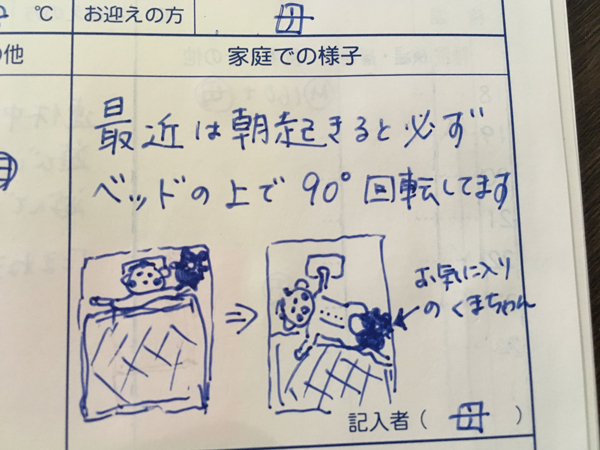 ℃ お迎えの方 母
の他 家庭での様子
最近は朝起きると必ず
ベッドの上で90°回転してます
お気に入り
のくまちゃん
記入者( 母 )